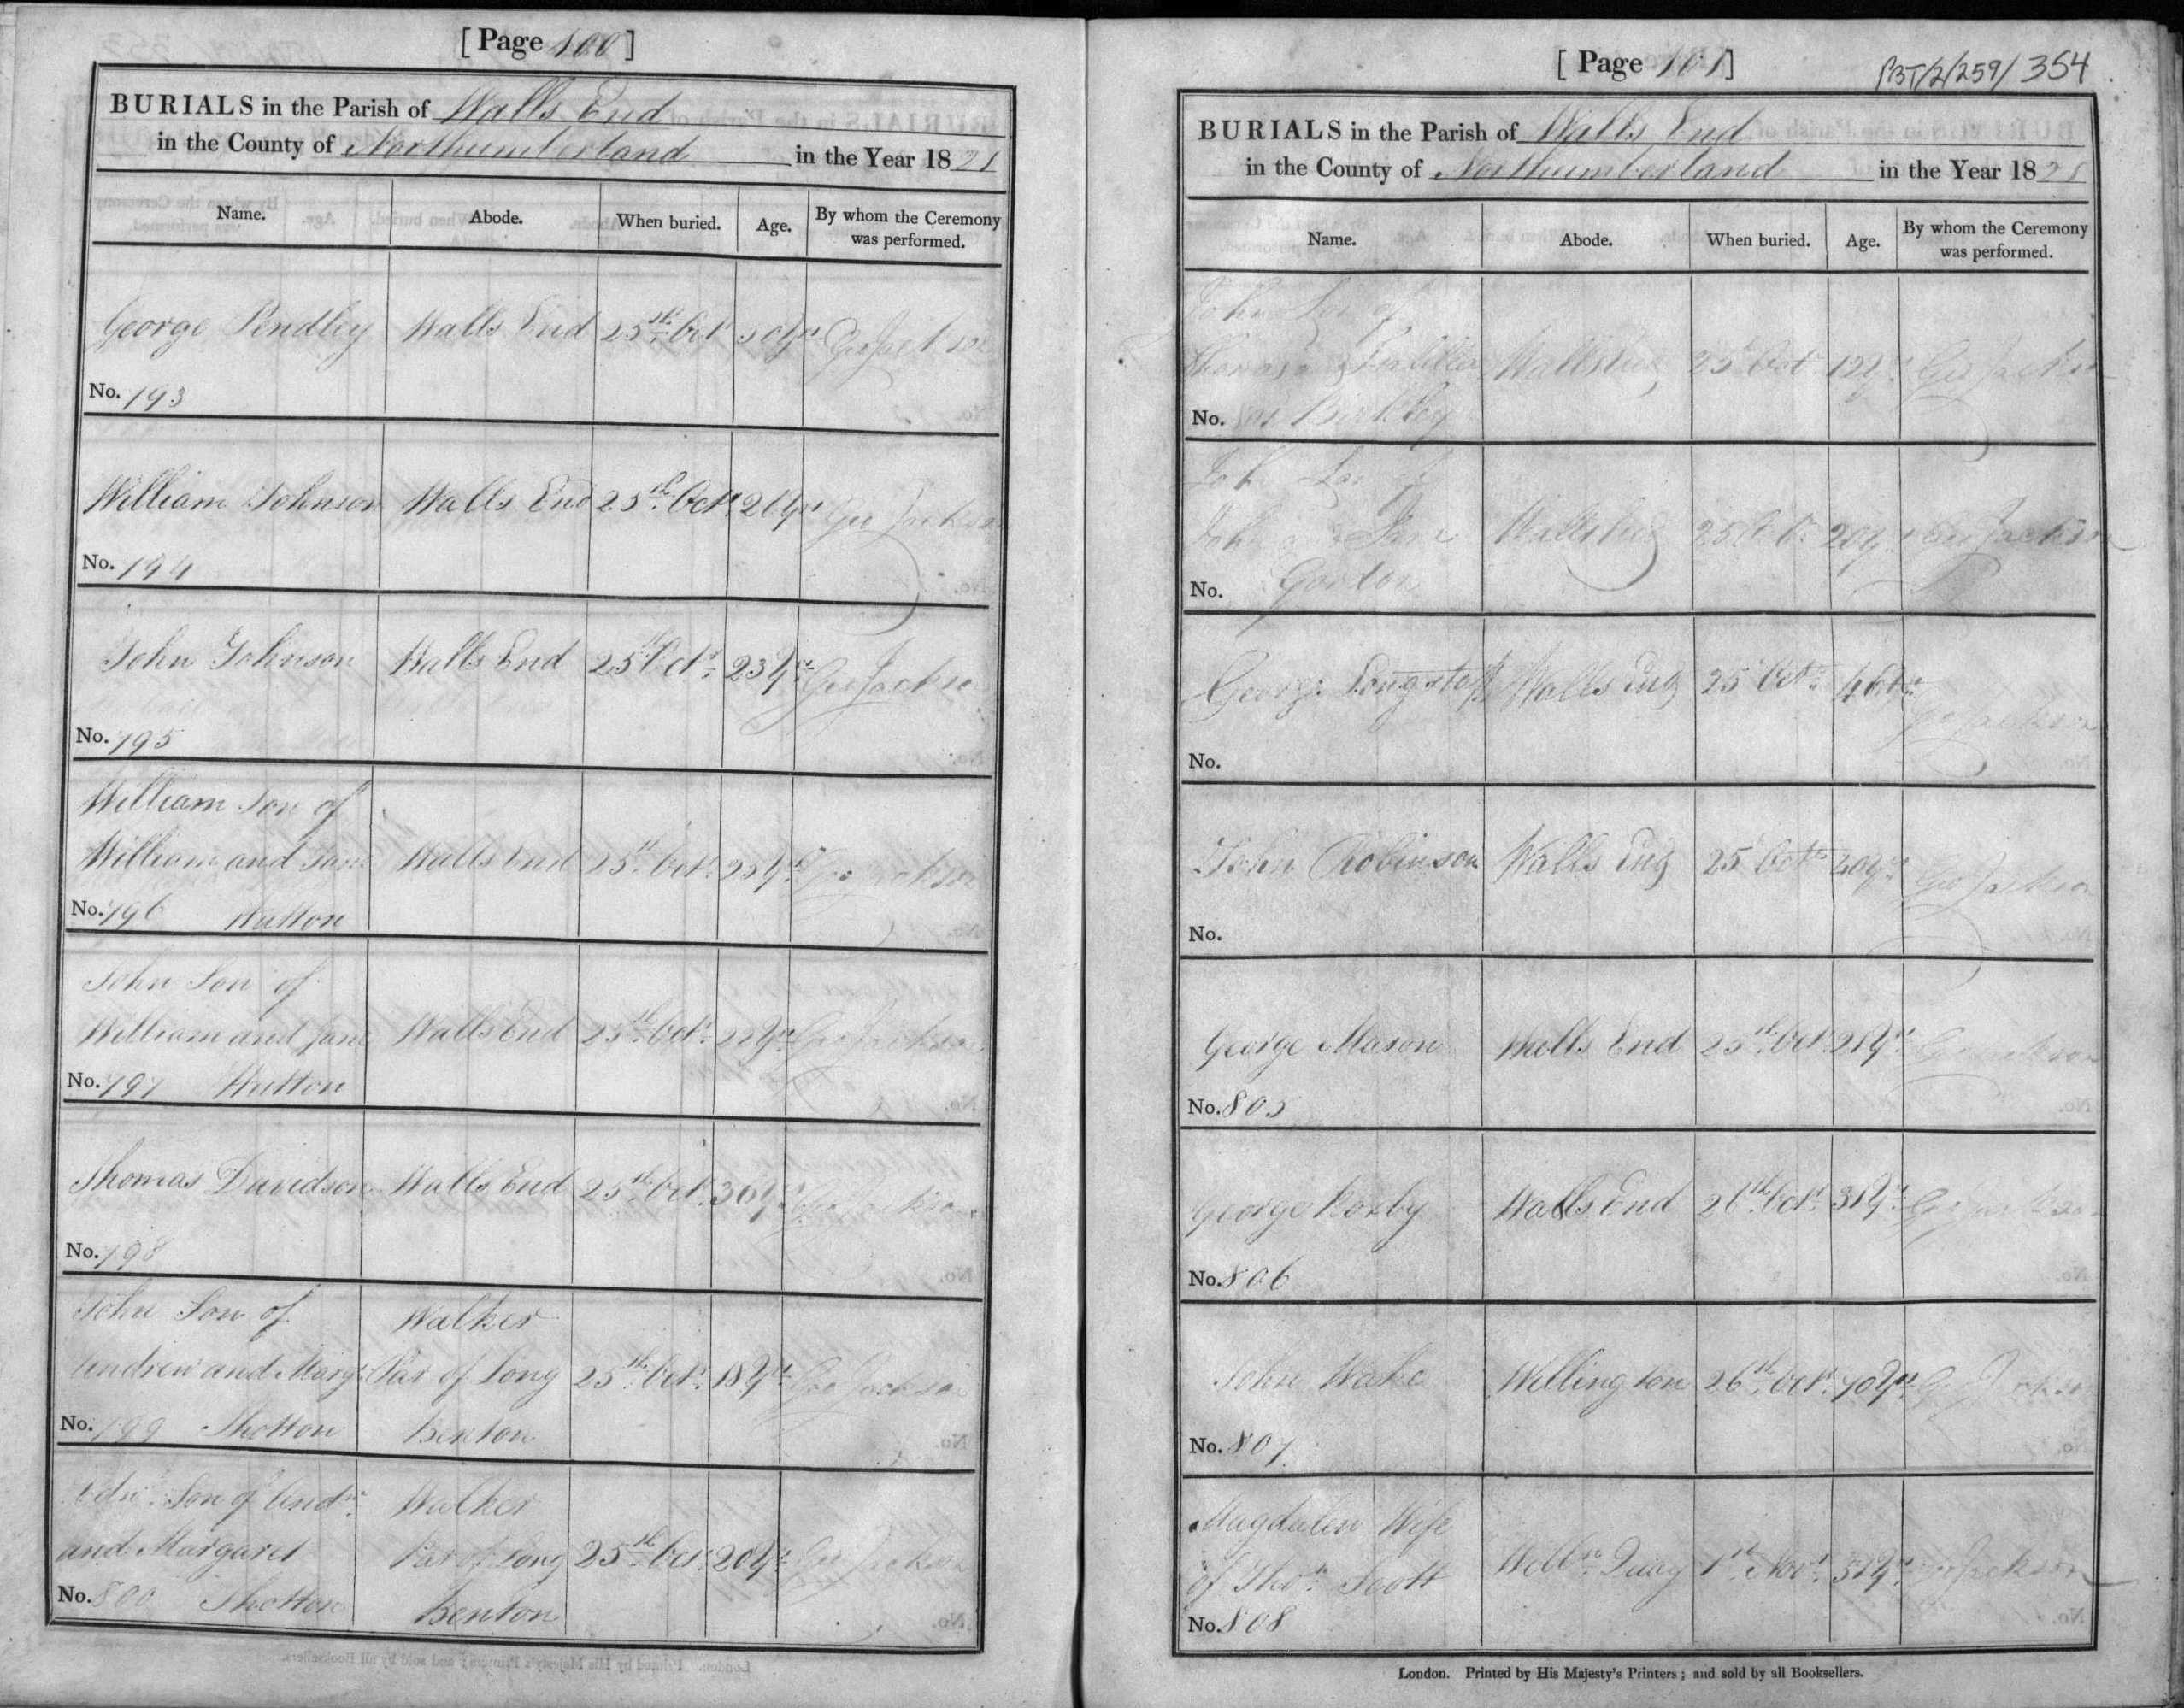 [ Page 100 ]
BURIALS in the Parish of Walls End
in the County of Northumberland in the Year 1821
Name. Abode. When buried. Age. By whom the Ceremony was performed.
George Pendley Walls End 25th Octr 50 yrs Geo Jackson
No. 793
William Johnson Walls End 25th Octr 26 yrs Geo Jackson
No. 794
John Johnson Walls End 25th Octr 23 yrs Geo Jackson
No. 795
William Son of
William and Jane Walls End 25th Octr yrs Geo Jackson
No. 796 Hutton
John Son of
William and Jane Walls End 25th Octr yrs Geo Jackson
No. 797 Hutton
Thomas Davidson Walls End 25th Octr 36 yrs Geo Jackson
No. 798
John Son of Walker
Andrew and Margt Par of Long 25th Octr 18 yrs Geo Jackson
No. 799 Shotton Benton
Son of Andw Walker
and Margaret Par of Long 25th Octr 20 yrs Geo Jackson
No. 800 Shotton Benton
[ Page 101 ]
PBT/2/259/354
BURIALS in the Parish of Walls End
in the County of Northumberland in the Year 1821
Name. Abode. When buried. Age. By whom the Ceremony was performed.
John Son of
Thomas Walls End 25 Oct 12 yrs Geo Jackson
No.
John Son of
John and Jane Walls End 25 Oct 20 yrs Geo Jackson
No. Gordon
George Longstaff Walls End 25 Octr 46 yrs Geo Jackson
No.
John Robinson Walls End 25 Octr 40 yrs Geo Jackson
No.
George Mason Walls End 25th Octr yrs Geo Jackson
No. 805
George Roxby Walls End 26th Octr yrs Geo Jackson
No. 806
John Wake Willington 26th Octr yrs Geo Jackson
No. 807
Magdalen Wife
of Thos Scott Willn Quay 1st Novr yrs Geo Jackson
No. 808
London. Printed by His Majesty's Printers; and sold by all Booksellers.